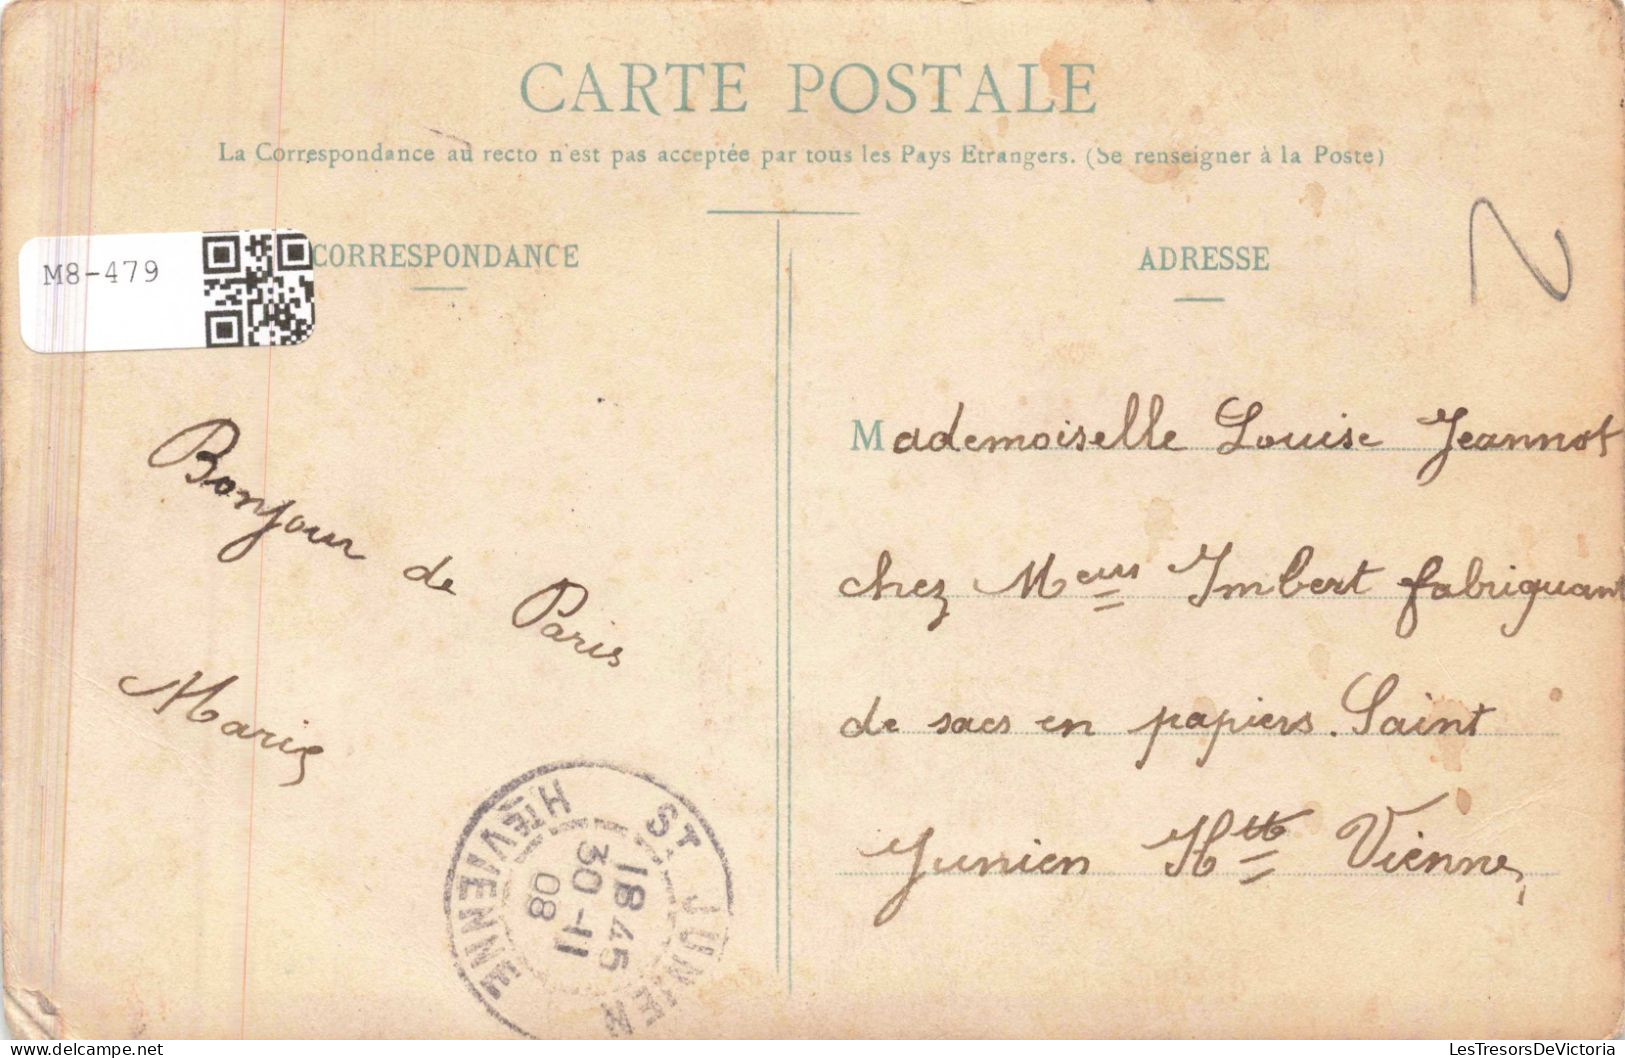 CARTE POSTALE
La Correspondance au recto n'est pas acceptée par tous les Pays Etrangers. (Se renseigner à la Poste)
M8-479
CORRESPONDANCE
Bonjour de Paris
Marie
ADRESSE
Mademoiselle Louise Jeannot
chez Meurs Imbert fabriquant
de sacs en papiers. Saint
Junien Htte Vienne,
ST JUNIEN
HTE VIENNE
18 45
30-11
08
LesTresorsDeVictoria